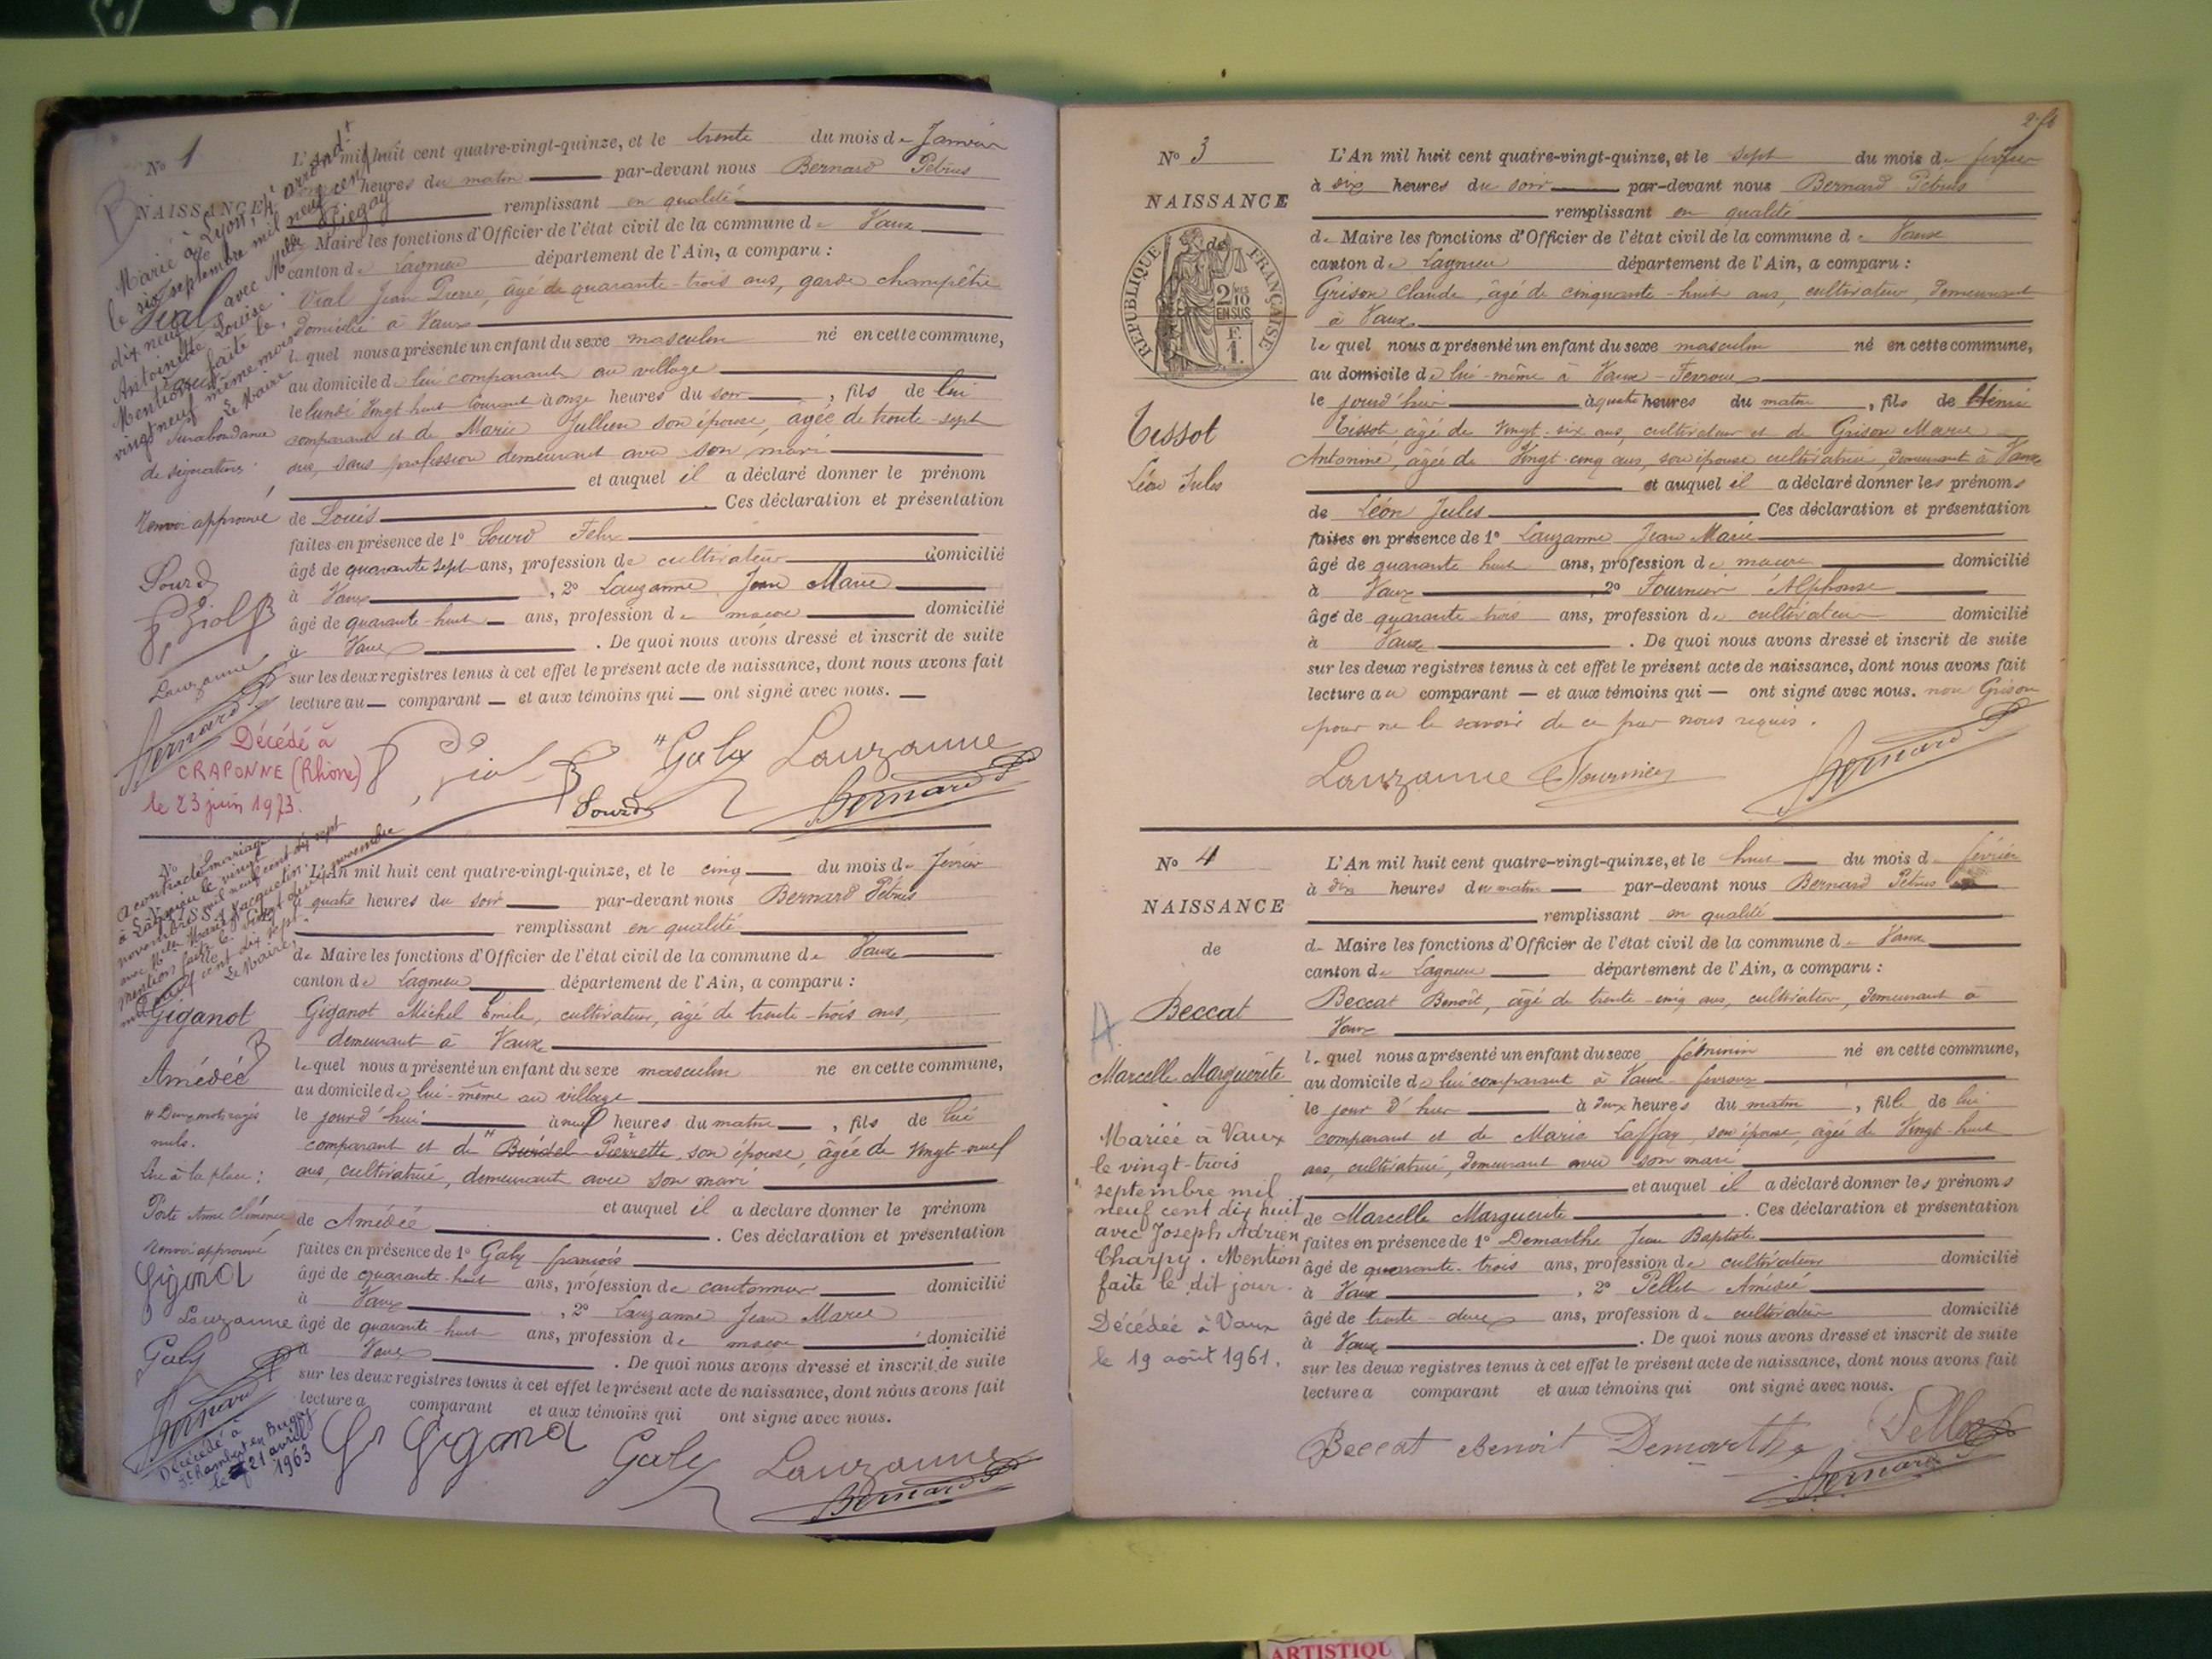 No 1
NAISSANCE
de
Vial
Marié à Lyon, 4e arrondt
le six septembre mil neuf cent
dix neuf avec Melle
Antoinette Louise
Mention faite le
vingt neuf même mois
Le Maire
Surabondance
de signatures
Renvoi approuvé
Sourd
Lauzanne
Bernard P
Décédé à
CRAPONNE (Rhône)
le 23 juin 1973.
L'An mil huit cent quatre-vingt-quinze, et le trente du mois de Janvier
heures du matin par-devant nous Bernard Pétrus
remplissant en qualité
Maire les fonctions d'Officier de l'état civil de la commune de Vaux
canton de Lagnieu département de l'Ain, a comparu :
Vial Jean Pierre, âgé de quarante-trois ans, garde champêtre
domicilié à Vaux
lequel nous a présenté un enfant du sexe masculin né en cette commune,
au domicile de lui comparant au village
le lundi vingt huit courant à onze heures du soir, fils de lui
comparant et de Marie Jullien son épouse, âgée de trente-sept
ans, sans profession demeurant avec son mari
et auquel il a déclaré donner le prénom
de Louis Ces déclaration et présentation
faites en présence de 1º Sourd Felix
âgé de quarante sept ans, profession de cultivateur domicilié
à Vaux, 2º Lauzanne Jean Marie
âgé de quarante-huit ans, profession de maçon domicilié
à Vaux. De quoi nous avons dressé et inscrit de suite
sur les deux registres tenus à cet effet le présent acte de naissance, dont nous avons fait
lecture au comparant et aux témoins qui ont signé avec nous.
Galy Lauzanne
Sourd Bernard P
No
a contracté mariage
à Lagnieu le vingt
novembre mil neuf cent dix sept
mention faite le vingt deux novembre
mil neuf cent dix sept
Le Maire,
Giganot
Amédée
Deux mots rayés
nuls.
Lire à la place :
Porte Anne Clémence
Renvoi approuvé
Giganot
Lauzanne
Galy
Bernard P
Décédé à
St Rambert en Bugey
le 21 avril
1963
L'An mil huit cent quatre-vingt-quinze, et le cinq du mois de février
à quatre heures du soir par-devant nous Bernard Pétrus
remplissant en qualité
de Maire les fonctions d'Officier de l'état civil de la commune de Vaux
canton de Lagnieu département de l'Ain, a comparu :
Giganot Michel Emile, cultivateur, âgé de trente-trois ans,
demeurant à Vaux
lequel nous a présenté un enfant du sexe masculin né en cette commune,
au domicile de lui-même au village
le jourd'hui à neuf heures du matin, fils de lui
comparant et de Burdel Pierrette son épouse, âgée de vingt-neuf
ans, cultivatrice, demeurant avec son mari
et auquel il a déclaré donner le prénom
de Amédée. Ces déclaration et présentation
faites en présence de 1º Galy françois
âgé de quarante-huit ans, profession de cantonnier domicilié
à Vaux, 2º Lauzanne Jean Marie
âgé de quarante-huit ans, profession de maçon domicilié
à Vaux. De quoi nous avons dressé et inscrit de suite
sur les deux registres tenus à cet effet le présent acte de naissance, dont nous avons fait
lecture a comparant et aux témoins qui ont signé avec nous.
Giganot Galy Lauzanne
Bernard P
No 3
NAISSANCE
de
RÉPUBLIQUE FRANÇAISE
2/10
EN SUS
F.
1.
Tissot
Léon Jules
L'An mil huit cent quatre-vingt-quinze, et le sept du mois de février
à six heures du soir par-devant nous Bernard Pétrus
remplissant en qualité
de Maire les fonctions d'Officier de l'état civil de la commune de Vaux
canton de Lagnieu département de l'Ain, a comparu :
Grison Claude, âgé de cinquante-huit ans, cultivateur, demeurant
à Vaux
lequel nous a présenté un enfant du sexe masculin né en cette commune,
au domicile de lui-même à Vaux-Fevroux
le jourd'hui à quatre heures du matin, fils de
Tissot âgé de vingt-six ans, cultivateur et de Grison Marie
Antonine, âgée de vingt-cinq ans, son épouse cultivatrice, demeurant à Vaux
et auquel il a déclaré donner les prénoms
de Léon Jules Ces déclaration et présentation
faites en présence de 1º Lauzanne Jean Marie
âgé de quarante-huit ans, profession de maçon domicilié
à Vaux 2º Fournier Alphonse
âgé de quarante-trois ans, profession de cultivateur domicilié
à Vaux. De quoi nous avons dressé et inscrit de suite
sur les deux registres tenus à cet effet le présent acte de naissance, dont nous avons fait
lecture au comparant et aux témoins qui ont signé avec nous. non Grison
pour ne le savoir de ce par nous requis.
Lauzanne Fournier Bernard P
No 4
NAISSANCE
de
Beccat
A
Marcelle Marguerite
Mariée à Vaux
le vingt-trois
septembre mil
neuf cent dix huit
avec Joseph Adrien
Charpy. Mention
faite le dit jour.
Décédée à Vaux
le 19 août 1961.
L'An mil huit cent quatre-vingt-quinze, et le huit du mois de février
à dix heures du matin par-devant nous Bernard Pétrus
remplissant en qualité
de Maire les fonctions d'Officier de l'état civil de la commune de Vaux
canton de Lagnieu département de l'Ain, a comparu :
Beccat Benoît, âgé de trente-cinq ans, cultivateur, demeurant à
Vaux
lequel nous a présenté un enfant du sexe féminin né en cette commune,
au domicile de lui comparant à Vaux-fevroux
le jour d'hier à deux heures du matin, fille de lui
comparant et de Marie Laffay, son épouse, âgée de vingt-huit
ans, cultivatrice, demeurant avec son mari
et auquel il a déclaré donner les prénoms
de Marcelle Marguerite. Ces déclaration et présentation
faites en présence de 1º Demarthe Jean Baptiste
âgé de quarante-trois ans, profession de cultivateur domicilié
à Vaux, 2º Pellet Amédée
âgé de trente-deux ans, profession de cultivateur domicilié
à Vaux. De quoi nous avons dressé et inscrit de suite
sur les deux registres tenus à cet effet le présent acte de naissance, dont nous avons fait
lecture a comparant et aux témoins qui ont signé avec nous.
Beccat Benoit Demarthe Pellet
Bernard P
ARTISTIQU